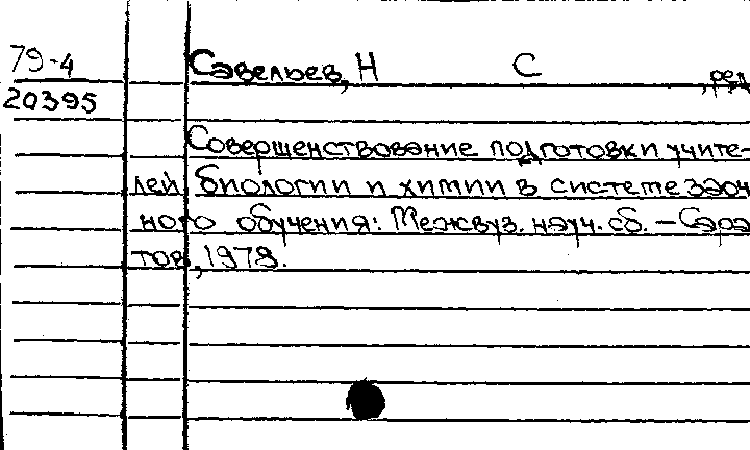 79-4 Савельев, Н С , ред
20395
Совершенствование подготовки учите-
лей биологии и химии в системе заоч
ного обучения: Межвуз. науч. сб. – Сара
тов, 1978.